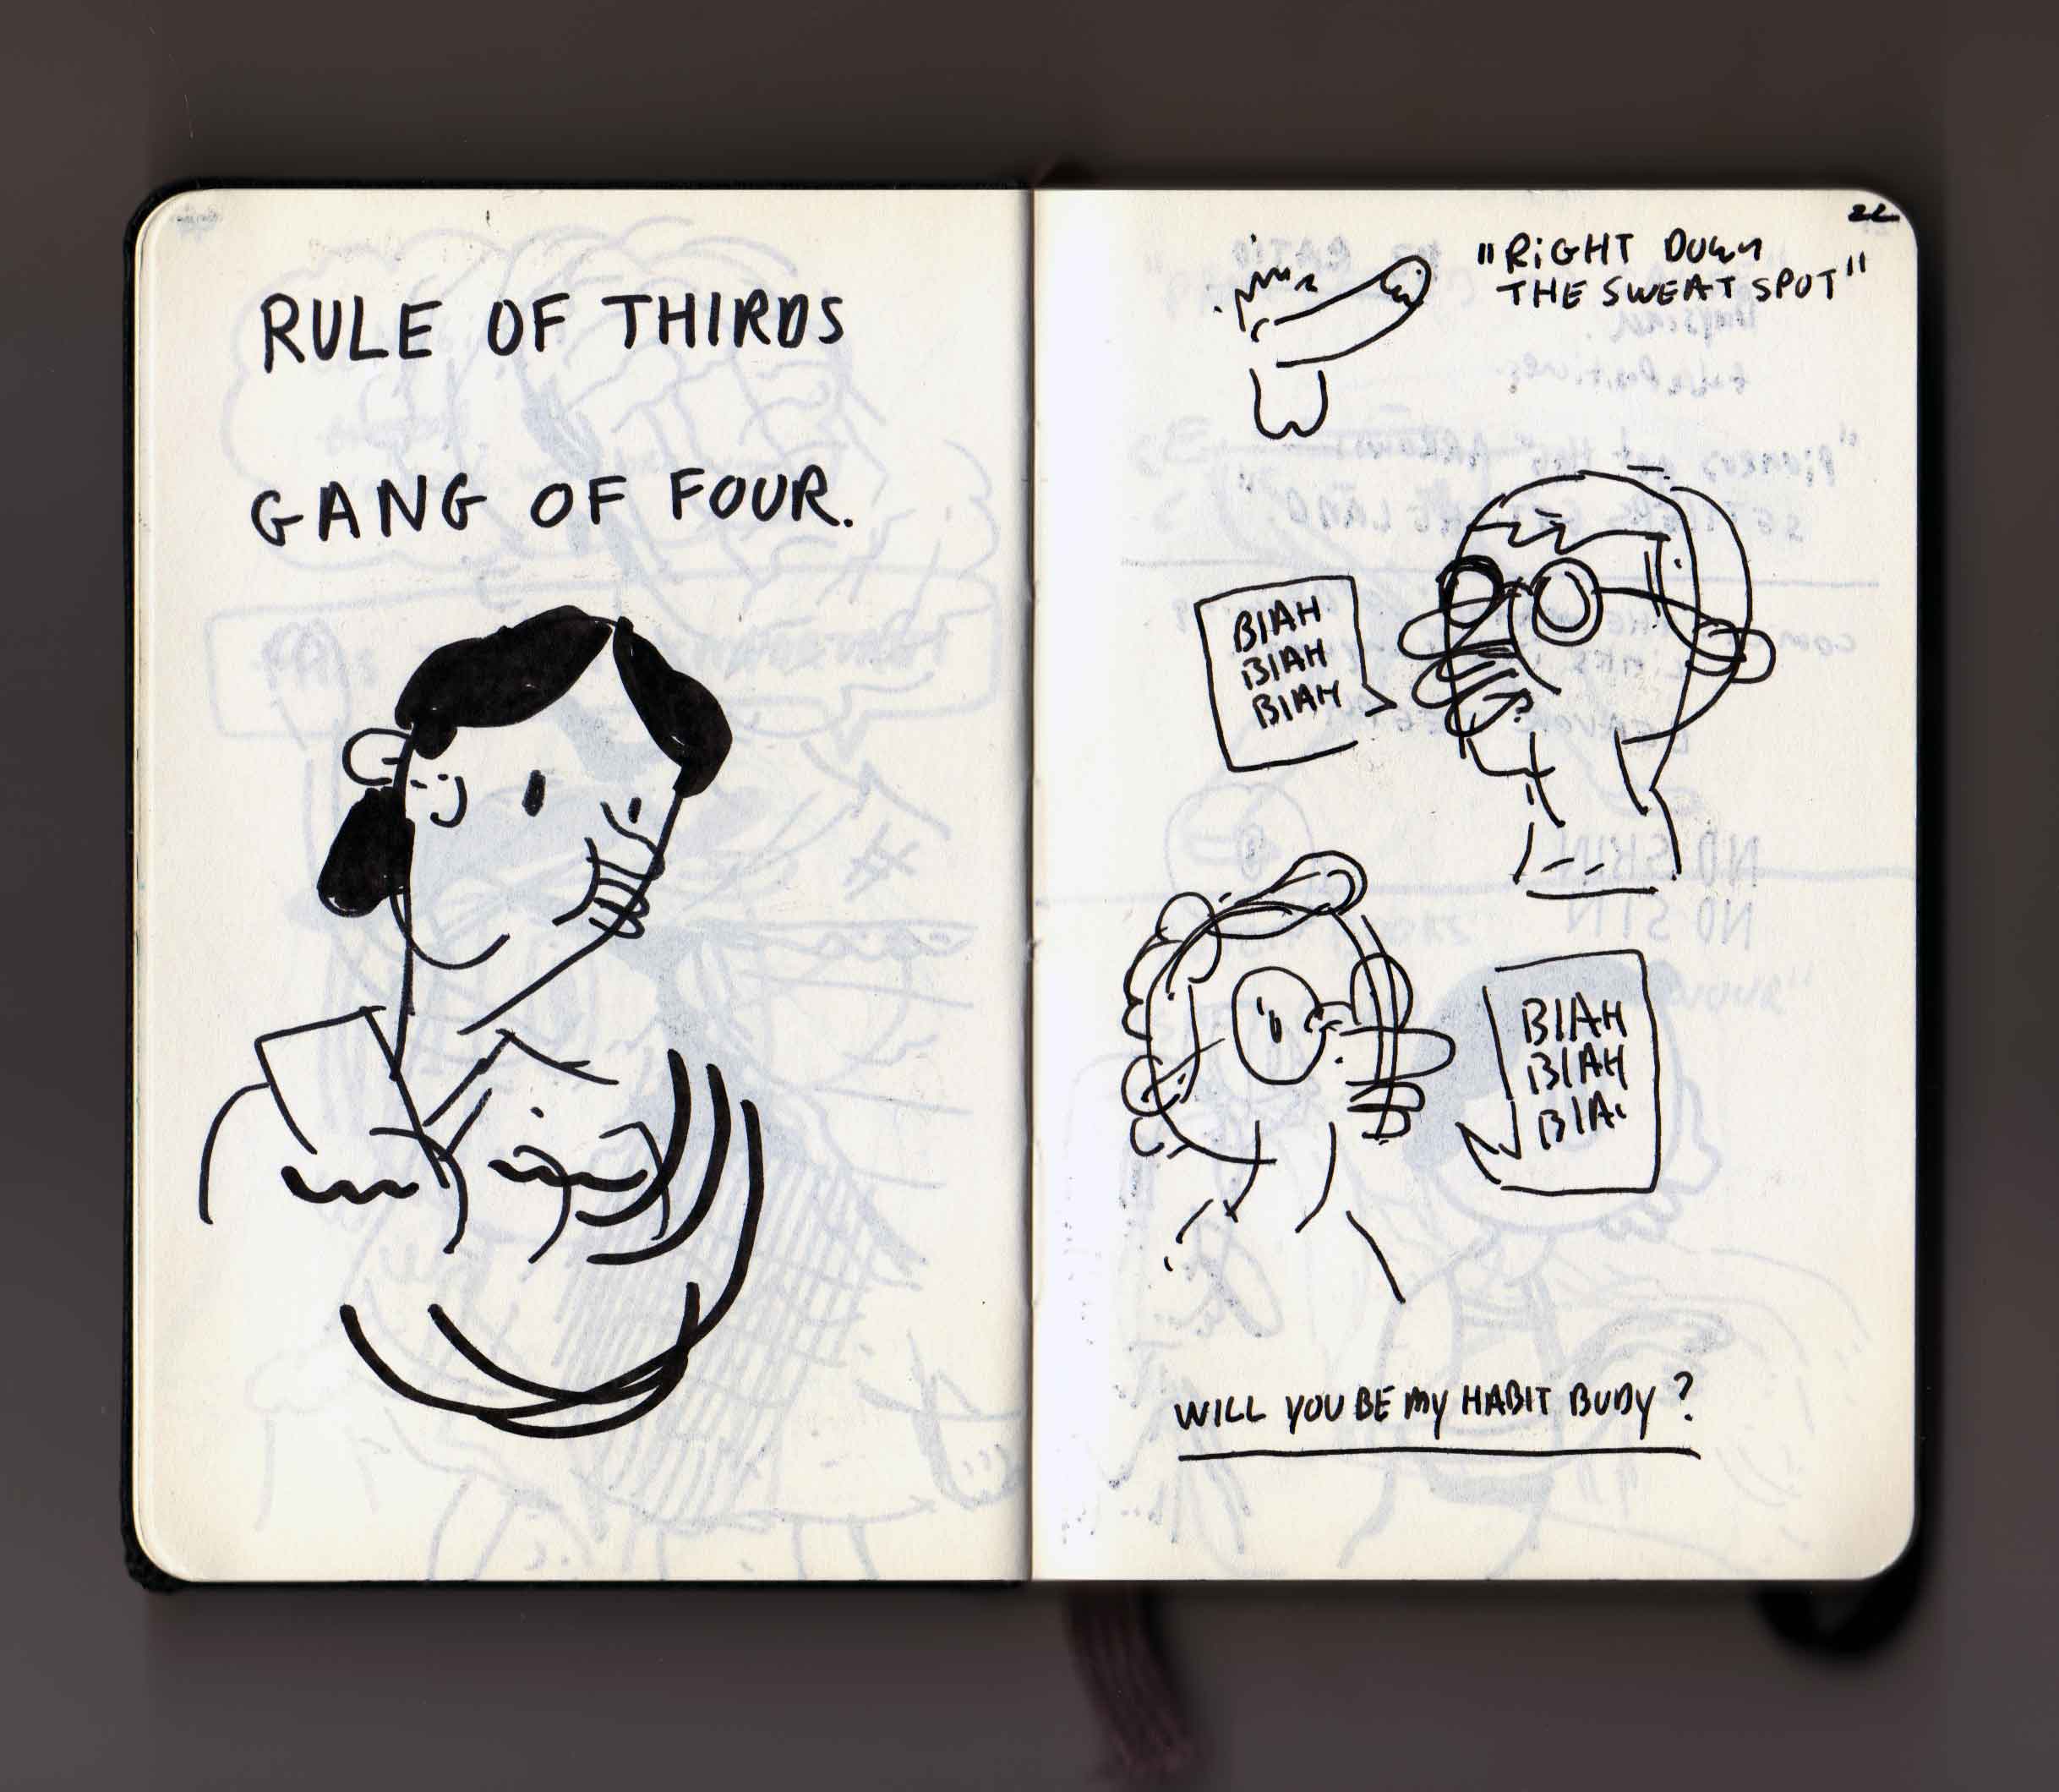 RULE OF THIRDS
GANG OF FOUR.
22
"RiGHT DOWN
THE SWEAT SPOT"
BlAH
BlAH
BlAH
BlAH
BlAH
BlA
WILL YOU BE MY HABIT BUDY?